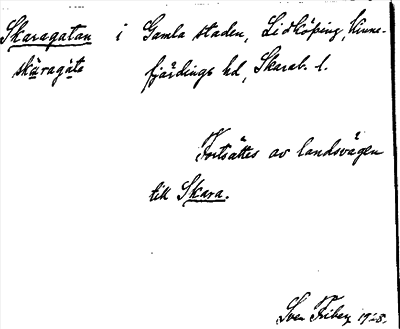 Skaragatan i Gamla staden, Lidköping, Kinne-
skäragåta fjärdings hd, Skarab. l.
Fortsättes av landsvägen
till Skara.
Sven Friberg